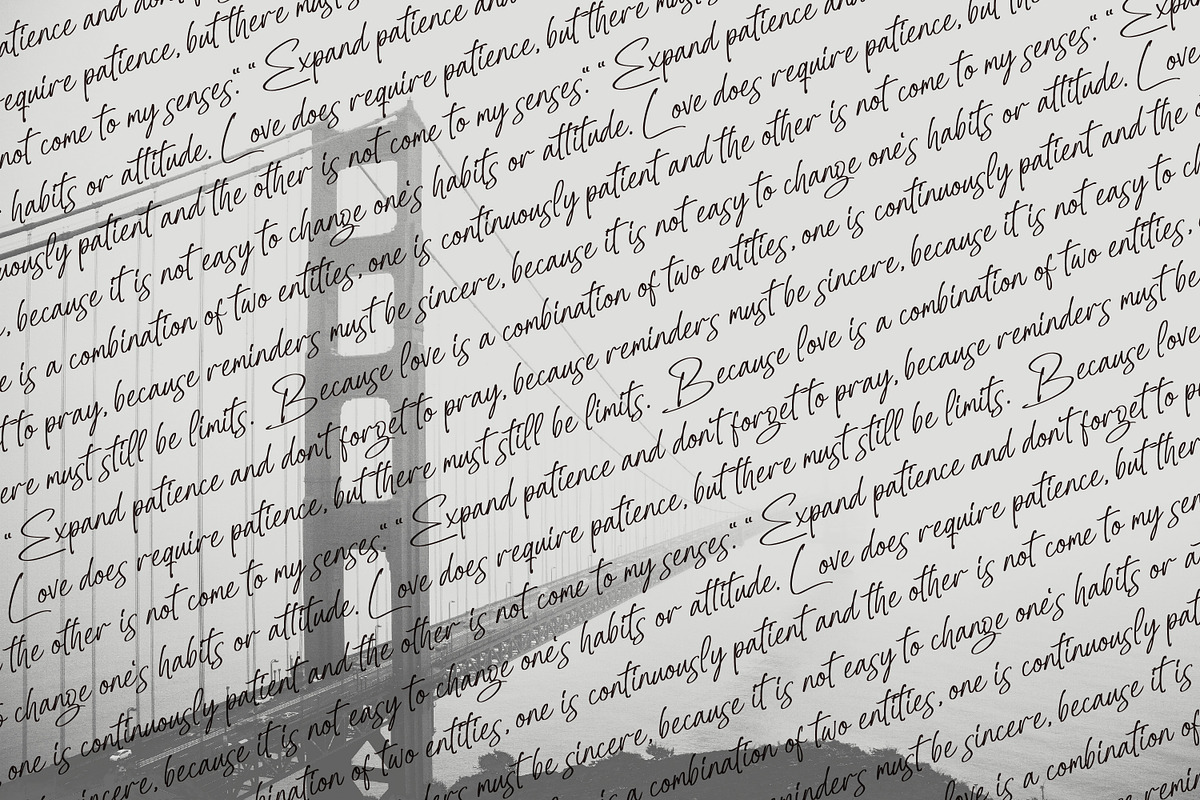 atience and don't
require patience, but there mus
not come to my senses.“ “Expand patience and
habits or attitude. Love does require patience, but there mus
uously patient and the other is not come to my senses.“ “Expand patience an
, because it is not easy to change one's habits or attitude. Love does require patience, but
e is a combination of two entities, one is continuously patient and the other is not come to my senses.“ “Expa
t to pray, because reminders must be sincere, because it is not easy to change one's habits or attitude. Love
ere must still be limits. Because love is a combination of two entities, one is continuously patient and the
“Expand patience and don't forget to pray, because reminders must be sincere, because it is not easy to ch
Love does require patience, but there must still be limits. Because love is a combination of two entities,
the other is not come to my senses.“ “Expand patience and don't forget to pray, because reminders must be
o change one's habits or attitude. Love does require patience, but there must still be limits. Because love
one is continuously patient and the other is not come to my senses.“ “Expand patience and don't forget to p
incere, because it is not easy to change one's habits or attitude. Love does require patience, but ther
bination of two entities, one is continuously patient and the other is not come to my sen
ers must be sincere, because it is not easy to change one's habits or a
s a combination of two entities, one is continuously pat
inders must be sincere, because it is
love is a combination of
remin